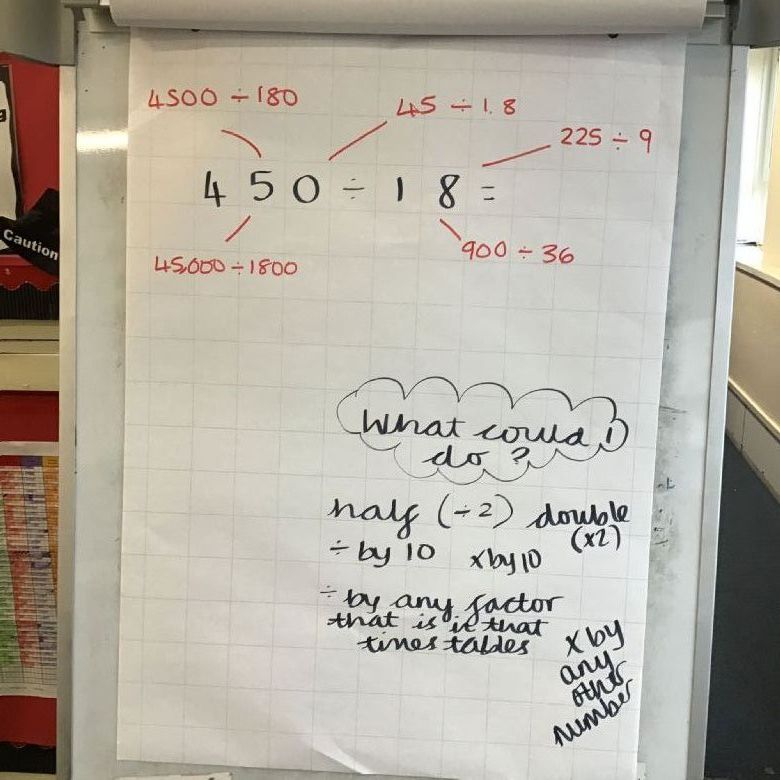 4500 ÷ 180
45 ÷ 1.8
225 ÷ 9
450 ÷ 18 =
45,000 ÷ 1800
900 ÷ 36
Caution
What could I
do ?
half (÷2) double
(x2)
÷ by 10 x by 10
÷ by any factor
that is in that
times tables
x by
any
other
number